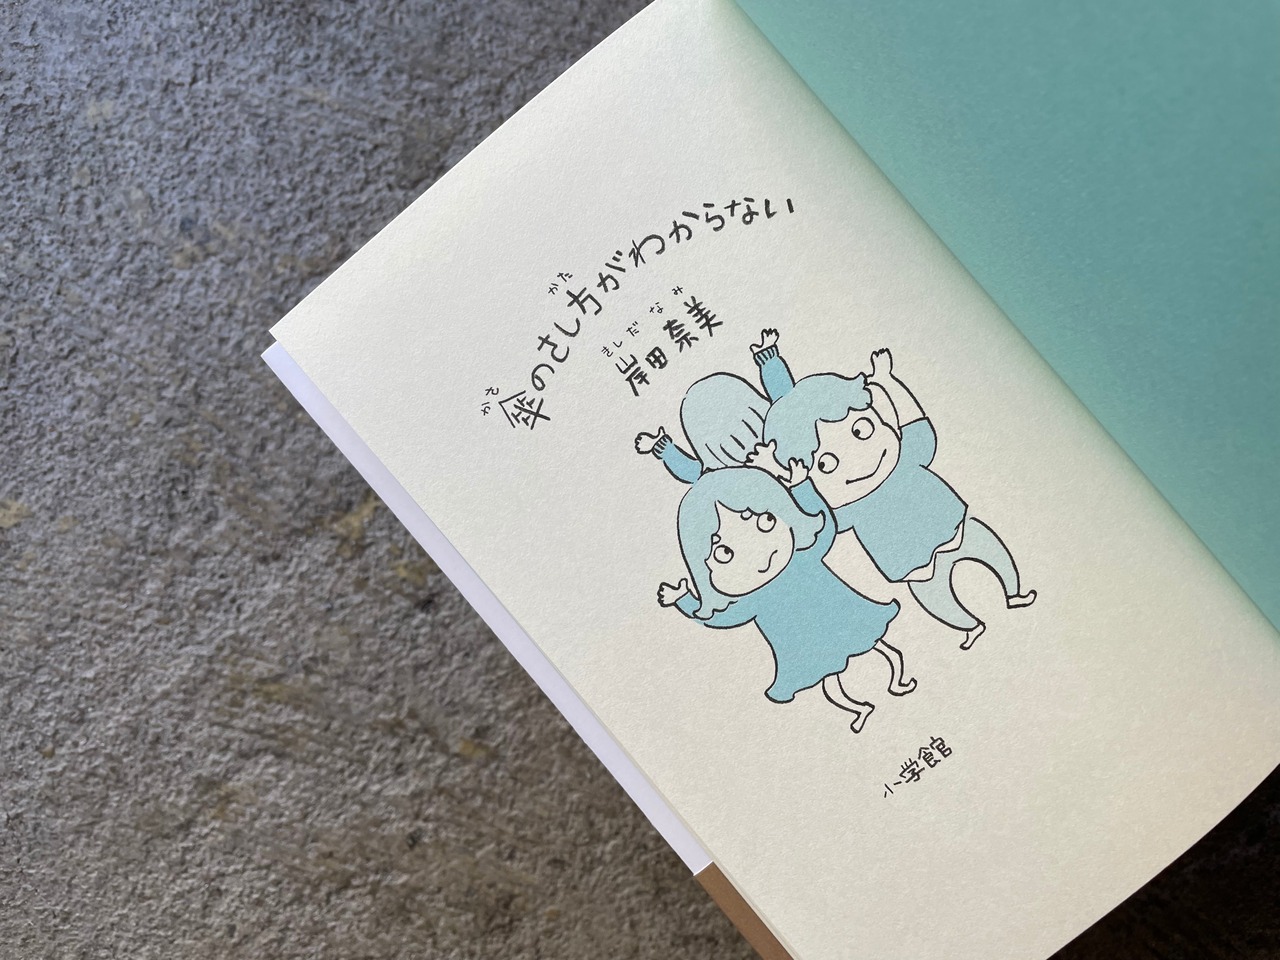 傘のさし方がわからない
かさ
かた
岸田奈美
きしだなみ
小学館